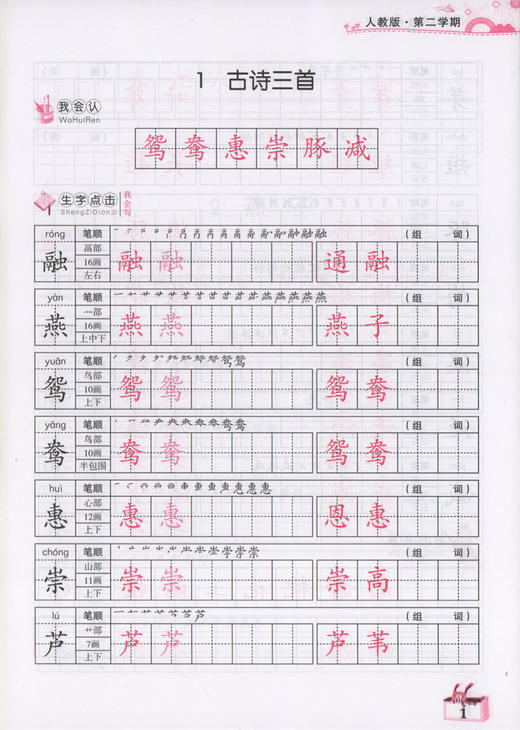 人教版·第二学期
1 古诗三首
我会认
WoHuiRen
鸳鸯惠崇豚减
生字点击 我会写
ShengZiDianJi
róng 笔顺 (组 词)
融 鬲部 16画 左右 融 融 通融
yàn 笔顺 (组 词)
燕 灬部 16画 上中下 燕 燕 燕子
yuān 笔顺 (组 词)
鸳 鸟部 10画 上下 鸳 鸳 鸳鸯
yāng 笔顺 (组 词)
鸯 鸟部 10画 半包围 鸯 鸯 鸳鸯
huì 笔顺 (组 词)
惠 心部 12画 上下 惠 惠 恩惠
chóng 笔顺 (组 词)
崇 山部 11画 上下 崇 崇 崇高
lú 笔顺 (组 词)
芦 艹部 7画 上下 芦 芦 芦苇
1